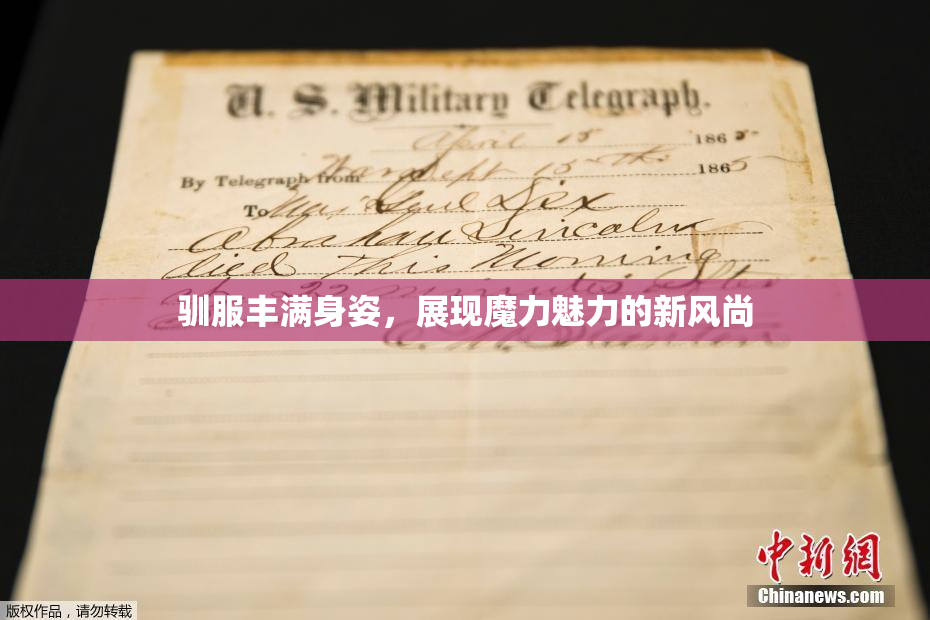 U. S. Military Telegraph.
April 15 1865
By Telegraph from War Dept 15th 1865
To Maj Genl Dix
Abraham Lincoln
died This Morning
at 22 minutes after
驯服丰满身姿，展现魔力魅力的新风尚
E. M. Stanton
中新网
Chinanews.com
版权作品，请勿转载